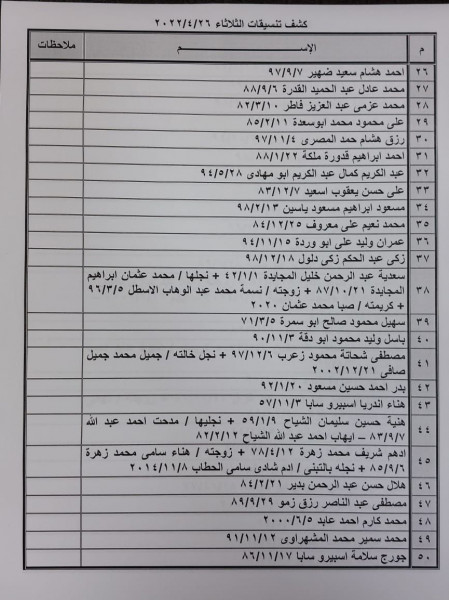 كشف تنسيقات الثلاثاء ٢٠٢٢/٤/٢٦
م الإســـــم ملاحظات
٢٦ احمد هشام سعيد ضهير ٩٧/٩/٧
٢٧ محمد عادل عبد الحميد القدرة ٨٨/٩/٦
٢٨ محمد عزمى عبد العزيز فاطر ٨٢/٣/١٠
٢٩ على محمود محمد ابوسعدة ٨٥/٢/١١
٣٠ رزق هشام حمد المصرى ٩٧/١١/٤
٣١ احمد ابراهيم قدورة ملكة ٨٨/١/٢٢
٣٢ عبد الكريم كمال عبد الكريم ابو مهادى ٩٤/٥/٢٨
٣٣ على حسن يعقوب اسعيد ٨٣/١٢/٧
٣٤ مسعود ابراهيم مسعود ياسين ٩٨/٢/١٣
٣٥ محمد نعيم على معروف ٨٤/١٢/٢٥
٣٦ عمران وليد على ابو وردة ٩٤/١١/١٥
٣٧ زكى عبد الحكم زكى دلول ٩٨/١٢/١٨
٣٨ سعدية عبد الرحمن خليل المجايدة ٤٢/١/١ + نجلها / محمد عثمان ابراهيم
المجايدة ٨٧/١٠/٢١ + زوجته / نسمة محمد عبد الوهاب الاسطل ٩٦/٣/٥
+ كريمته / صبا محمد عثمان ٢٠٢٠
٣٩ سهيل محمود صالح ابو سمرة ٧١/٣/٥
٤٠ باسل وليد محمود ابو دقة ٩٠/١١/٣
٤١ مصطفى شحاتة محمود زعرب ٩٧/١٢/٦ + نجل خالته / جميل محمد جميل
صافى ٢٠٠٢/١٢/٢١
٤٢ بدر احمد حسين مسعود ٩٢/١/٢٠
٤٣ هناء اندريا اسبيرو سابا ٥٧/١١/٣
٤٤ هنية حسين سليمان الشياح ٥٩/١/٩ + نجليها / مدحت احمد عبد الله
٨٣/٩/٧ – ايهاب احمد عبد الله الشياح ٨٢/٢/١٢
٤٥ ادهم شريف محمد زهرة ٧٨/٤/١٢ + زوجته / هناء سامى محمد زهرة
٨٥/٩/٦ + نجله بالتبنى / ادم شادى سامى الحطاب ٢٠١٤/١١/٨
٤٦ هلال حسن عبد الرحمن بدير ٨٤/٢/٢١
٤٧ مصطفى عبد الناصر رزق زمو ٨٩/٩/٢٩
٤٨ محمد كارم احمد عابد ٢٠٠٠/٦/٥
٤٩ محمد سمير محمد المشهراوى ٩١/١١/١٢
٥٠ جورج سلامة اسبيرو سابا ٨٦/١١/١٧